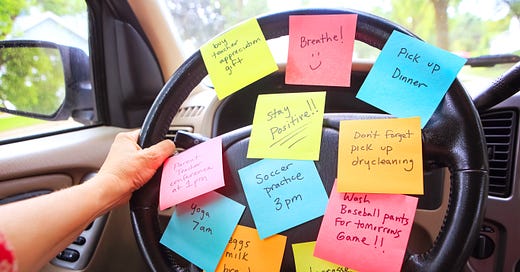 buy
teacher
appreciation
gift
Breathe!
Pick up
Dinner
Stay
Positive!!
Don't forget
pick up
drycleaning
Parent
Teacher
conference
at 1pm
Soccer
practice
3 pm
Wash
Baseball pants
for tomorrows
Game!!
Yoga
7am
eggs
milk